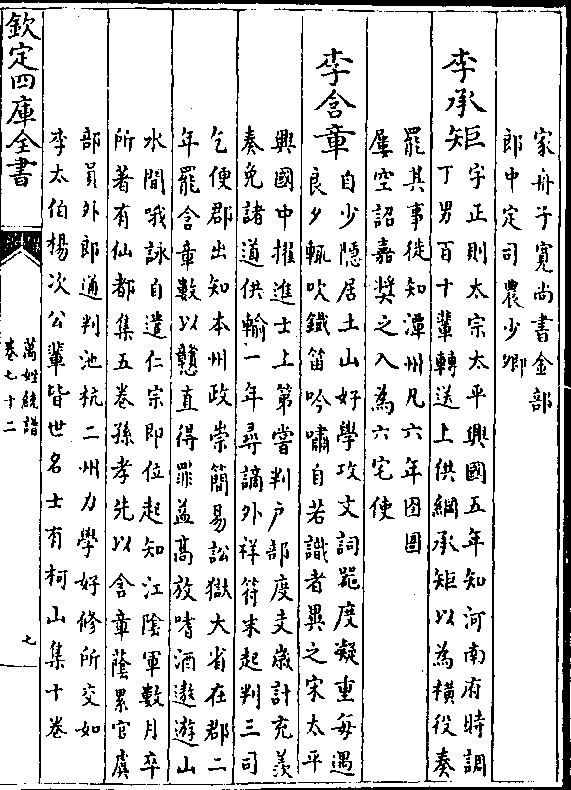 家舟子寬尚書金部
郎中定司農少卿
李承矩字正則太宗太平興國五年知河南府時調
丁男百十輩轉送上供綱承矩以為橫役奏
罷其事徙知潭州凡六年囹圄
屢空詔嘉奬之入為六宅使
李含章自少隱居土山好學攻文詞噐度凝重毎遇
良夕輒吹鐵笛吟嘯自若識者異之宋太平
興國中擢進士上第嘗判户部度支歳計充羨
奏免諸道供輸一年尋謫外祥符末起判三司
乞便郡出知本州政崇簡易訟獄大省在郡二
年罷含章數以戇直得罪益髙放嗜酒遨遊山
水間哦詠自遣仁宗即位起知江隂軍數月卒
所著有仙都集五卷孫孝先以含章蔭累官虞
部員外郎通判池杭二州力學好修所交如
李太伯楊次公輩皆世名士有柯山集十卷
欽定四庫全書
萬姓統譜
卷七十二
七